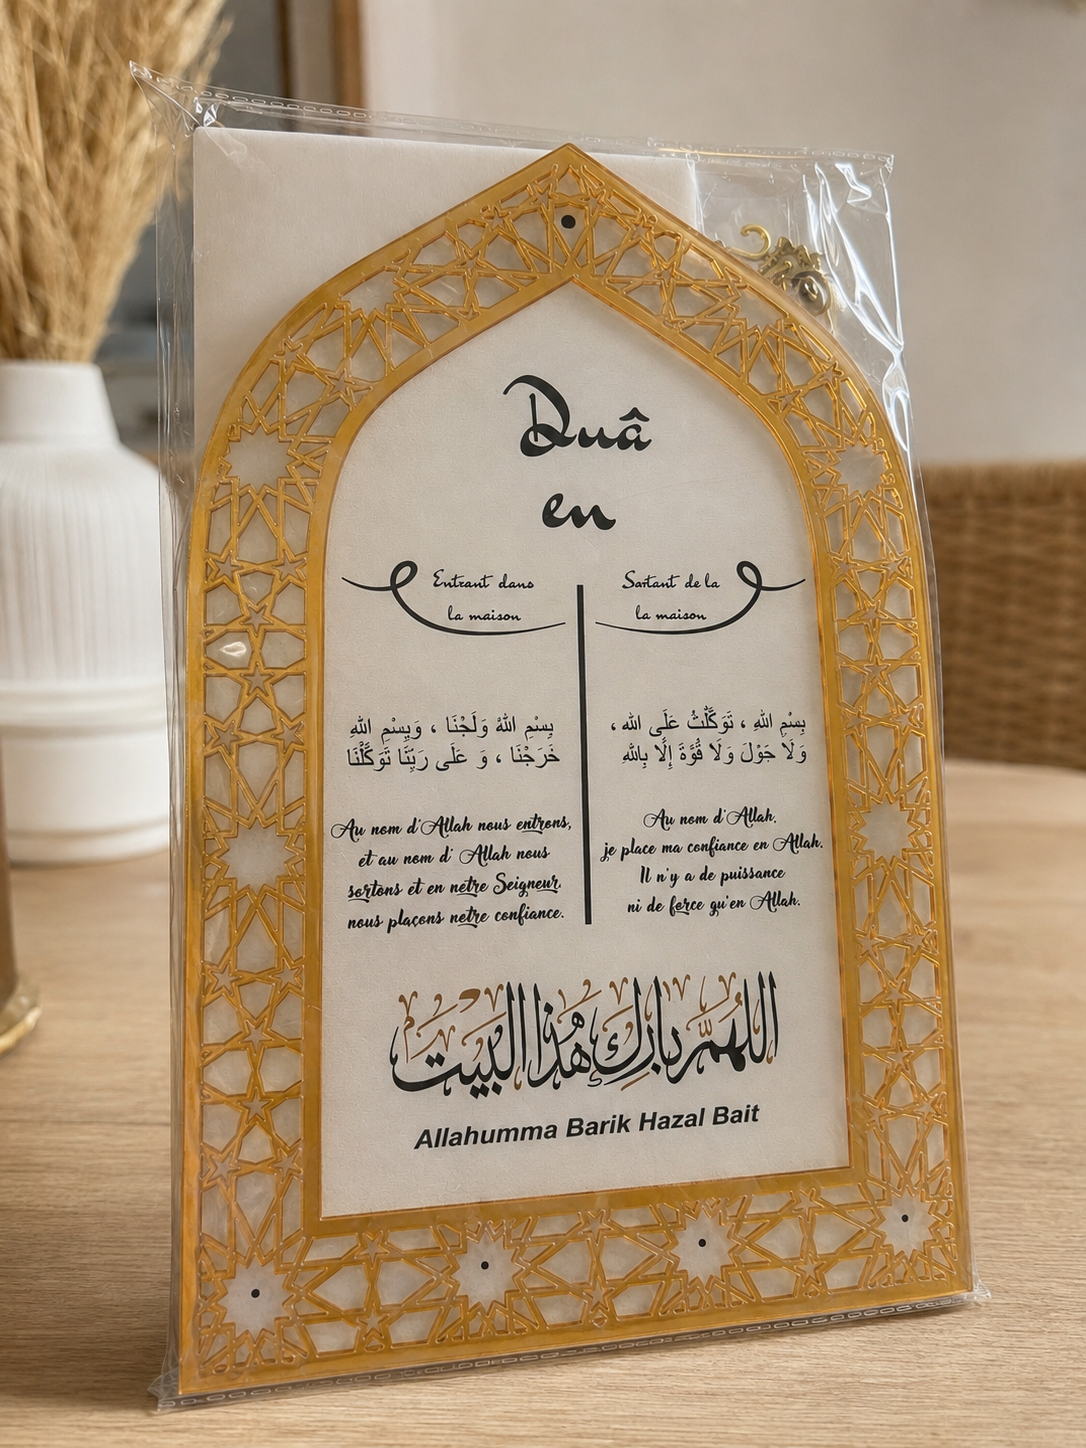 Duâ
en
Entrant dans
la maison
Sartant de la
la maison
بِسْمِ اللهُ وَلَجْنَا ، وَبِسْمِ اللهِ
خَرَجْنَا ، وَ عَلَى رَبِّنَا تَوَكَّلْنَا
بِسْمِ اللهِ ، تَوَكَّلْتُ عَلَى الله ،
وَلَا حَوْلَ وَلَا قُوَّةَ إِلَّا بِاللهِ
Au nom d'Allah nous entrons,
et au nom d' Allah nous
sortons et en notre Seigneur
nous plaçons notre confiance.
Au nom d'Allah,
je place ma confiance en Allah.
Il n'y a de puissance
ni de force qu'en Allah.
اللهُمَّ بَارِك هٰذَا البَيْت
Allahumma Barik Hazal Bait